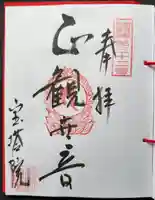 奉拝
正観世音
宝塔院